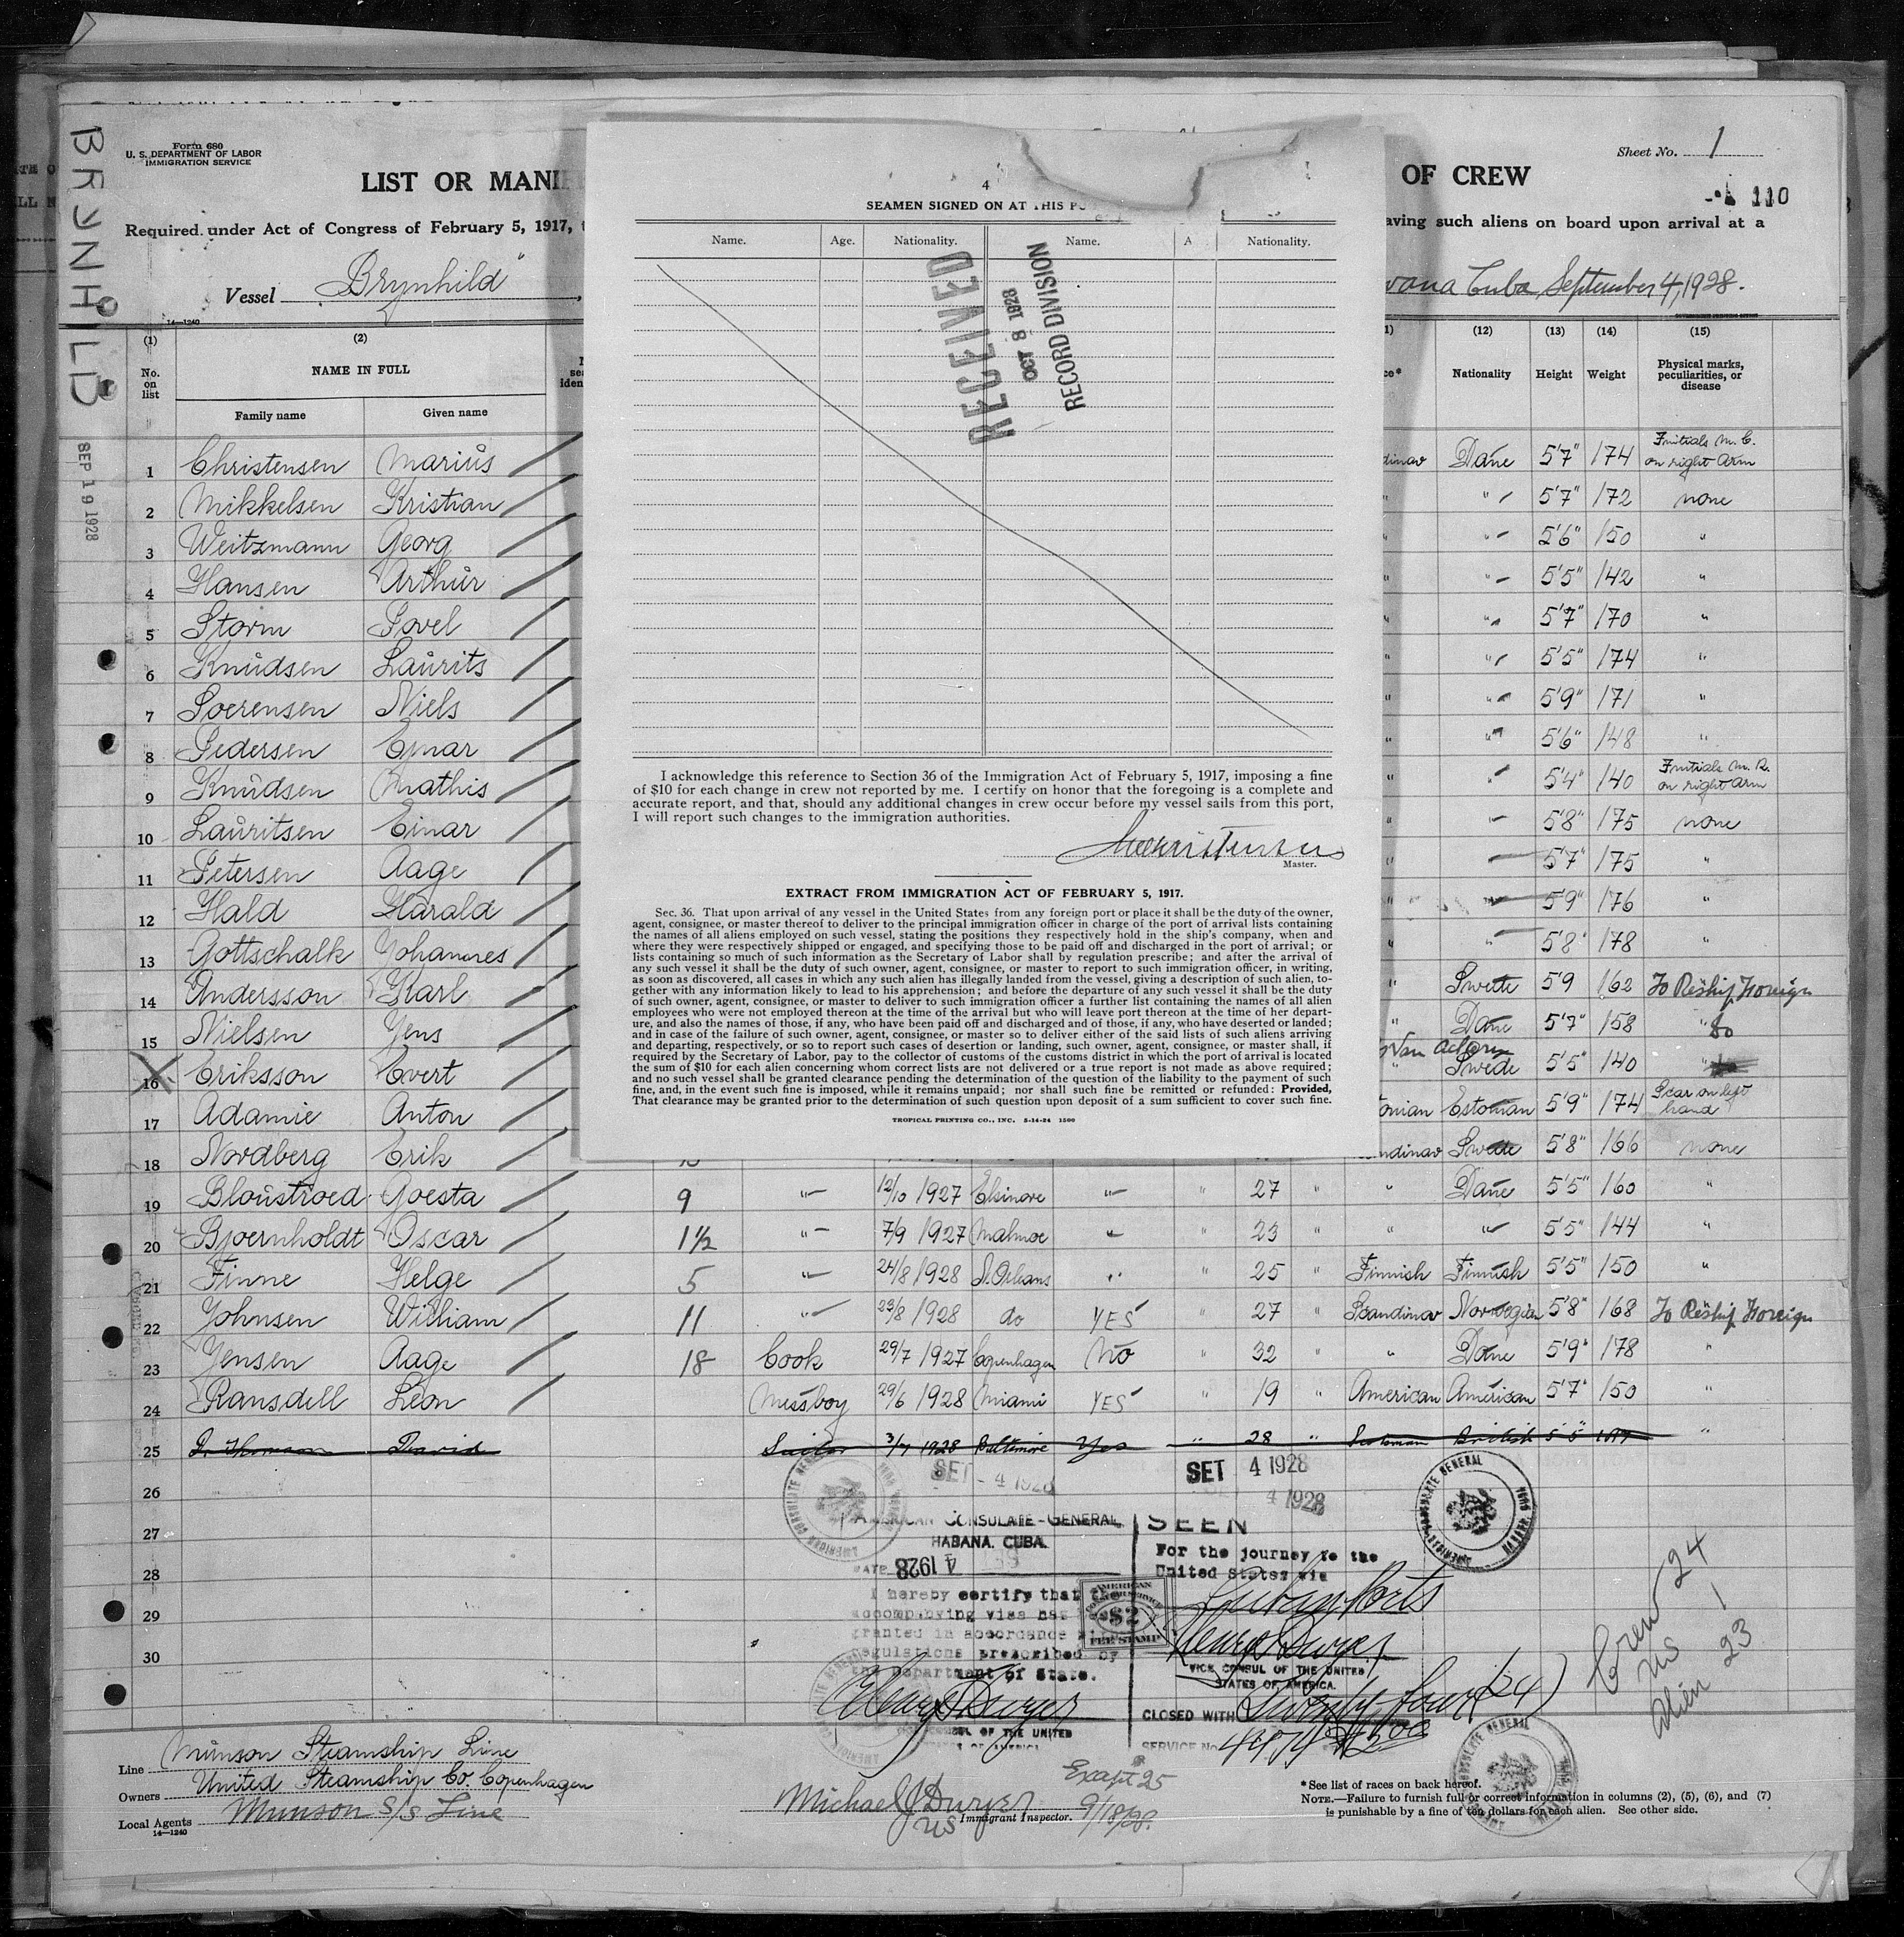 BRYNHILD
SEP 19 1928
Form 680
U. S. DEPARTMENT OF LABOR
IMMIGRATION SERVICE
Sheet No. 1
LIST OR MANI
OF CREW
110
Required under Act of Congress of February 5, 1917,
aving such aliens on board upon arrival at a
Vessel "Brynhild",
vana Cuba, September 4, 1928.
14—1240
(1) (2) (12) (13) (14) (15)
No. on list
NAME IN FULL
Family name Given name
Nationality Height Weight Physical marks, peculiarities, or disease
4
SEAMEN SIGNED ON AT THIS P
Name. Age. Nationality. Name. A Nationality.
RECEIVED
OCT 8 1928
RECORD DIVISION
I acknowledge this reference to Section 36 of the Immigration Act of February 5, 1917, imposing a fine
of $10 for each change in crew not reported by me. I certify on honor that the foregoing is a complete and
accurate report, and that, should any additional changes in crew occur before my vessel sails from this port,
I will report such changes to the immigration authorities.
Master.
EXTRACT FROM IMMIGRATION ACT OF FEBRUARY 5, 1917.
Sec. 36. That upon arrival of any vessel in the United States from any foreign port or place it shall be the duty of the owner,
agent, consignee, or master thereof to deliver to the principal immigration officer in charge of the port of arrival lists containing
the names of all aliens employed on such vessel, stating the positions they respectively hold in the ship's company, when and
where they were respectively shipped or engaged, and specifying those to be paid off and discharged in the port of arrival; or
lists containing so much of such information as the Secretary of Labor shall by regulation prescribe; and after the arrival of
any such vessel it shall be the duty of such owner, agent, consignee, or master to report to such immigration officer, in writing,
as soon as discovered, all cases in which any such alien has illegally landed from the vessel, giving a description of such alien, to-
gether with any information likely to lead to his apprehension; and before the departure of any such vessel it shall be the duty
of such owner, agent, consignee, or master to deliver to such immigration officer a further list containing the names of all alien
employees who were not employed thereon at the time of the arrival but who will leave port thereon at the time of her depart-
ure, and also the names of those, if any, who have been paid off and discharged and of those, if any, who have deserted or landed;
and in case of the failure of such owner, agent, consignee, or master so to deliver either of the said lists of such aliens arriving
and departing, respectively, or so to report such cases of desertion or landing, such owner, agent, consignee, or master shall, if
required by the Secretary of Labor, pay to the collector of customs of the customs district in which the port of arrival is located
the sum of $10 for each alien concerning whom correct lists are not delivered or a true report is not made as above required;
and no such vessel shall be granted clearance pending the determination of the question of the liability to the payment of such
fine, and, in the event such fine is imposed, while it remains unpaid; nor shall such fine be remitted or refunded: Provided,
That clearance may be granted prior to the determination of such question upon deposit of a sum sufficient to cover such fine.
TROPICAL PRINTING CO., INC. 5-14-24 1500
1 Christensen Marius dinav Dane 5'7" 174 Initials M. C. on right arm
2 Mikkelsen Kristian " " 5'7" 172 none
3 Weitzmann Georg " " 5'6" 150 "
4 Hansen Arthur " " 5'5" 142 "
5 Storm Povel " " 5'7" 170 "
6 Knudsen Laurits " " 5'5" 174 "
7 Soerensen Niels " " 5'9" 171 "
8 Pedersen Ejnar " " 5'6" 148 "
9 Knudsen Mathis " " 5'4" 140 Initials M. R. on right arm
10 Lauritsen Einar " " 5'8" 175 none
11 Petersen Aage " " 5'7" 175 "
12 Hald Harald " " 5'9" 176 "
13 Gottschalk Johannes " " 5'8" 178 "
14 Andersson Karl " Swede 5'9 162 To Reship Foreign
15 Nielsen Jens " Dane 5'7" 158 " do
16 Eriksson Evert " Swede 5'5" 140
17 Adamie Anton onian Estonian 5'9" 174 Scar on left hand
18 Nordberg Erik ndinav Swede 5'8" 166 none
19 Bloustroed Goesta 9 " 12/10 1927 Elsinore " " 27 " " Dane 5'5" 160 "
20 Bjoernholdt Oscar 1½ " 7/9 1927 Malmoe " " 23 " " " 5'5" 144 "
21 Finne Helge 5 " 24/8 1928 N. Orleans " " 25 " Finnish Finnish 5'5" 150 "
22 Johnsen William 11 " 23/8 1928 do YES " 27 " Scandinav Norwegian 5'8" 168 To Reship Foreign
23 Jensen Aage 18 Cook 29/7 1927 Copenhagen No " 32 " " Dane 5'9" 178 "
24 Ransdell Leon Messboy 29/6 1928 Miami YES " 19 " American American 5'7" 150 "
25 David Sailor 3/7 1928 Baltimore Yes " 28 " Scotsman British 5'5" "
26
27
28
29
30
SET - 4 1928
SET 4 1928
4 1928
AMERICAN CONSULATE-GENERAL
HABANA. CUBA.
DATE 4 1928
I hereby certify that the
accompanying visa has
granted in accordance with
regulations prescribed by
the Department of State.
AMERICAN CONSULAR SERVICE
$2
FEE STAMP
Henry Dwyer
SUL OF THE UNITED
S OF AMERICA
SEEN
For the journey to the
United States via
Cuban Ports
Henry Dwyer
VICE CONSUL OF THE UNITED
STATES OF AMERICA.
CLOSED WITH Twenty four (24)
SERVICE No.
AMERICAN CONSULATE GENERAL
Crew 24
US 1
Alien 23
Line Munson Steamship Line
Owners United Steamship Co. Copenhagen
Local Agents Munson S/S Line
14—1240
Except 25
Michael J Dwyer
US Immigrant Inspector. 9/18/28.
*See list of races on back hereof.
NOTE.—Failure to furnish full or correct information in columns (2), (5), (6), and (7)
is punishable by a fine of ten dollars for each alien. See other side.